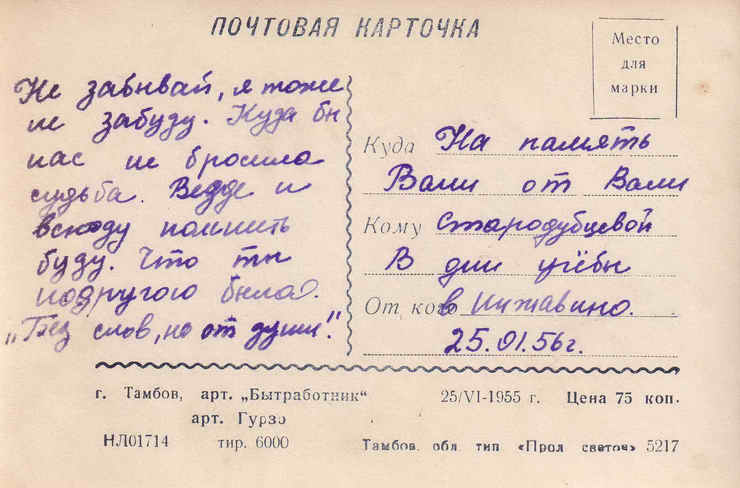 ПОЧТОВАЯ КАРТОЧКА
Место
для
марки
Не забывай, я тоже
не забуду. Куда бы
нас не бросила
судьба. Везде и
всюду помнить
буду. Что ты
подругою была.
„Без слов, но от души."
Куда На память
Вали от Вали
Кому Стародубцевой
В дни учёбы
От кого в Инжавино.
25.01.56г.
г. Тамбов, арт. „Бытработник“ 25/VI-1955 г. Цена 75 коп.
арт. Гурзо
НЛ01714 тир. 6000 Тамбов. обл. тип «Прол светоч» 5217